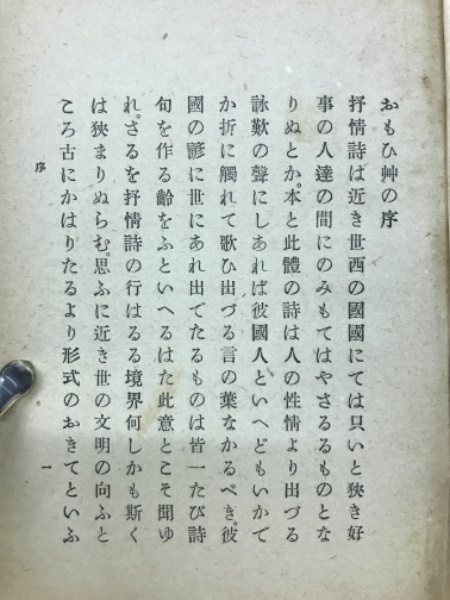 おもひ艸の序
抒情詩は近き世西の國國にては只いと狹き好
事の人達の間にのみもてはやさるるものとな
りぬとか。本と此體の詩は人の性情より出づる
詠歎の聲にしあれば彼國人といへどもいかで
か折に觸れて歌ひ出づる言の葉なかるべき。彼
國の諺に世にあれ出でたるものは皆一たび詩
句を作る齡をふといへるはた此意とこそ聞ゆ
れ。さるを抒情詩の行はるる境界何しかも斯く
は狹まりぬらむ。思ふに近き世の文明の向ふと
ころ古にかはりたるより形式のおきてといふ
序
一